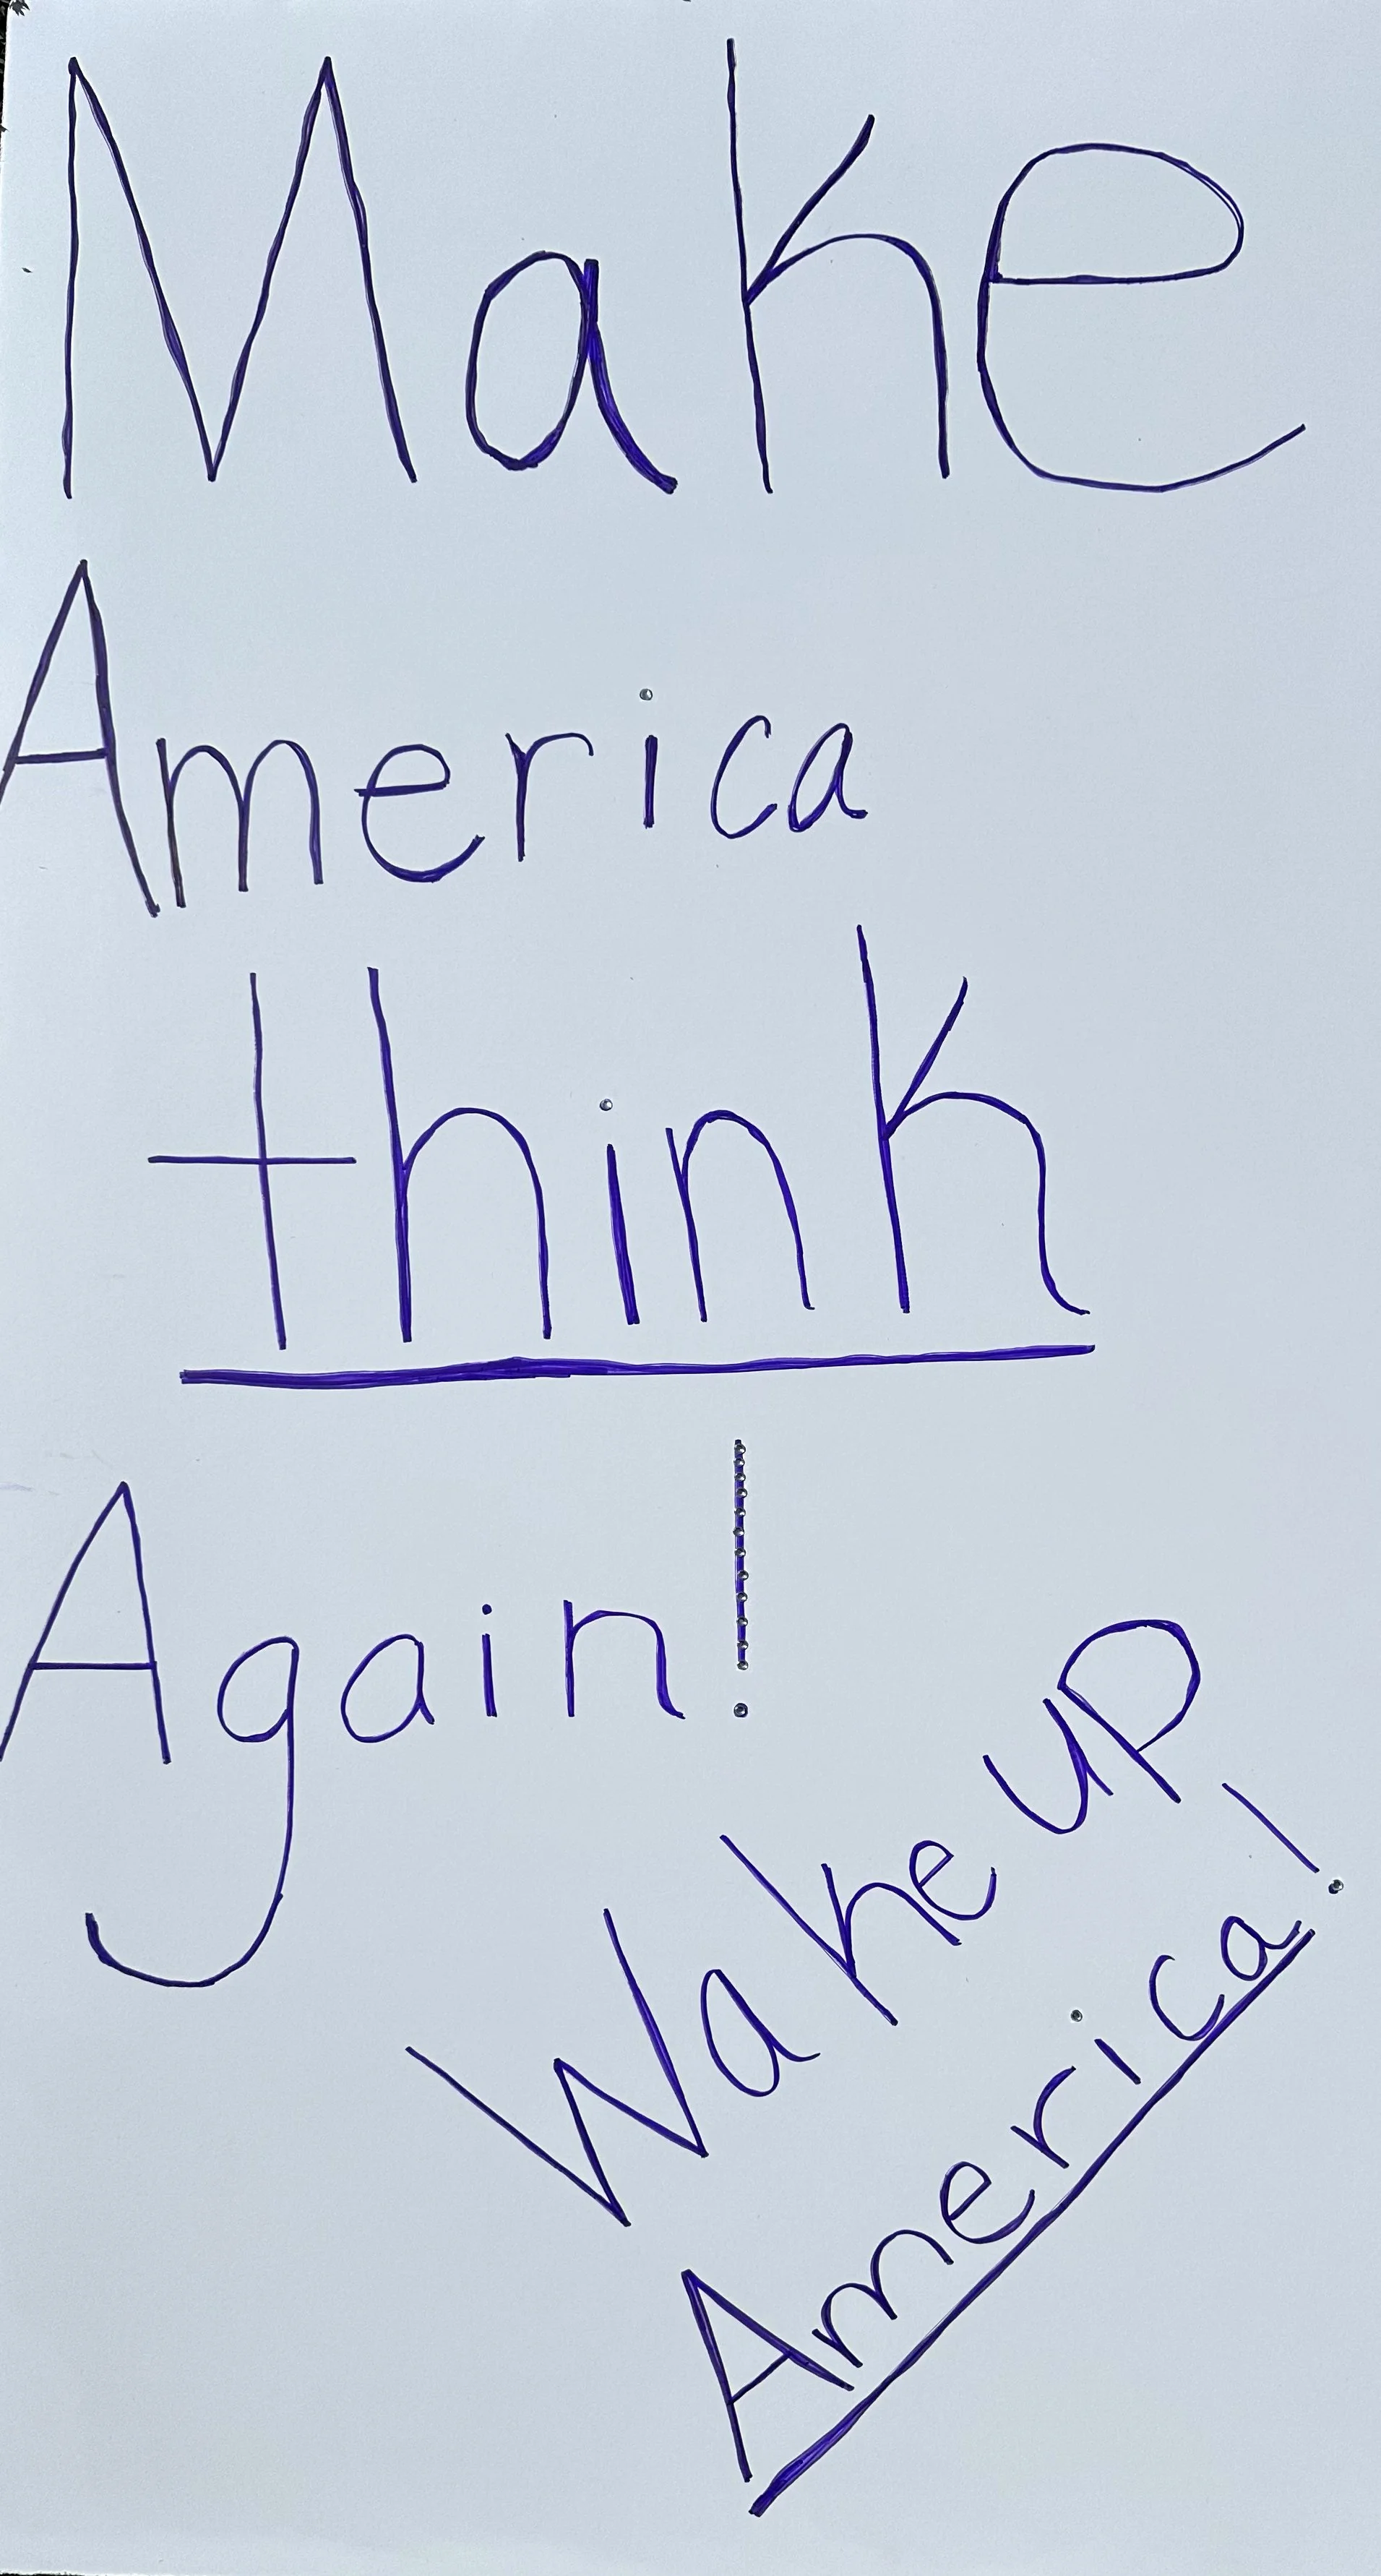 Make
America
think
Again!
Wake up
America!